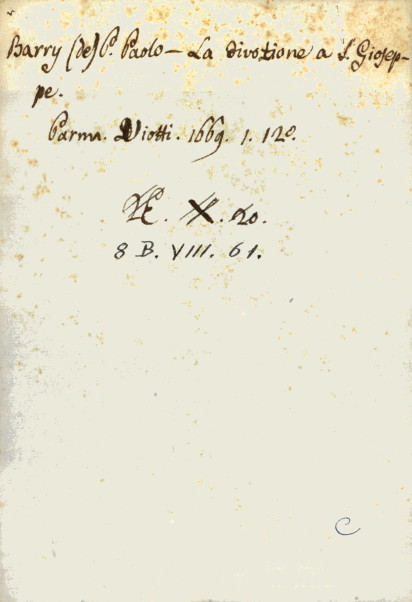 Barry (de) P. Paolo - La divotione a S. Giosep-
pe.
Parma. Viotti. 1669. 1. 12º.
X. 20.
8 B. VIII. 61.
C